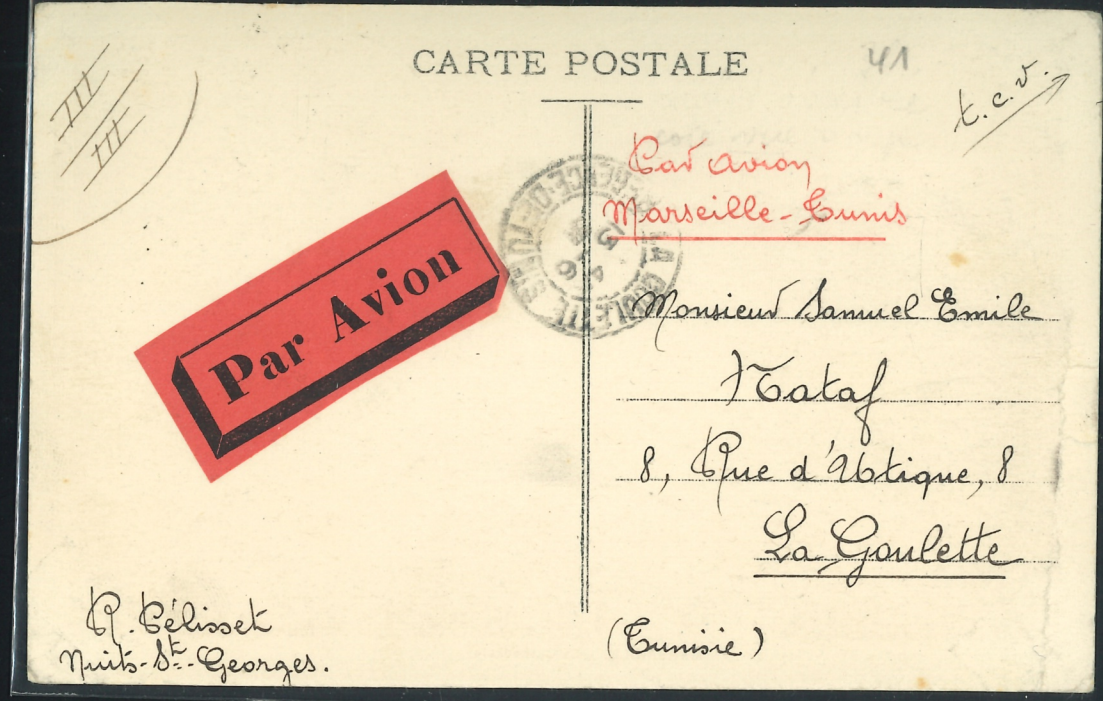 CARTE POSTALE
41
t.c.v.
III
III
Par avion
Marseille-Tunis
Par Avion
LA GOULETTE
Monsieur Samuel Emile
Nataf
8, Rue d'Utique, 8
La Goulette
(Tunisie)
R. Pélisset
Nuits-St-Georges.